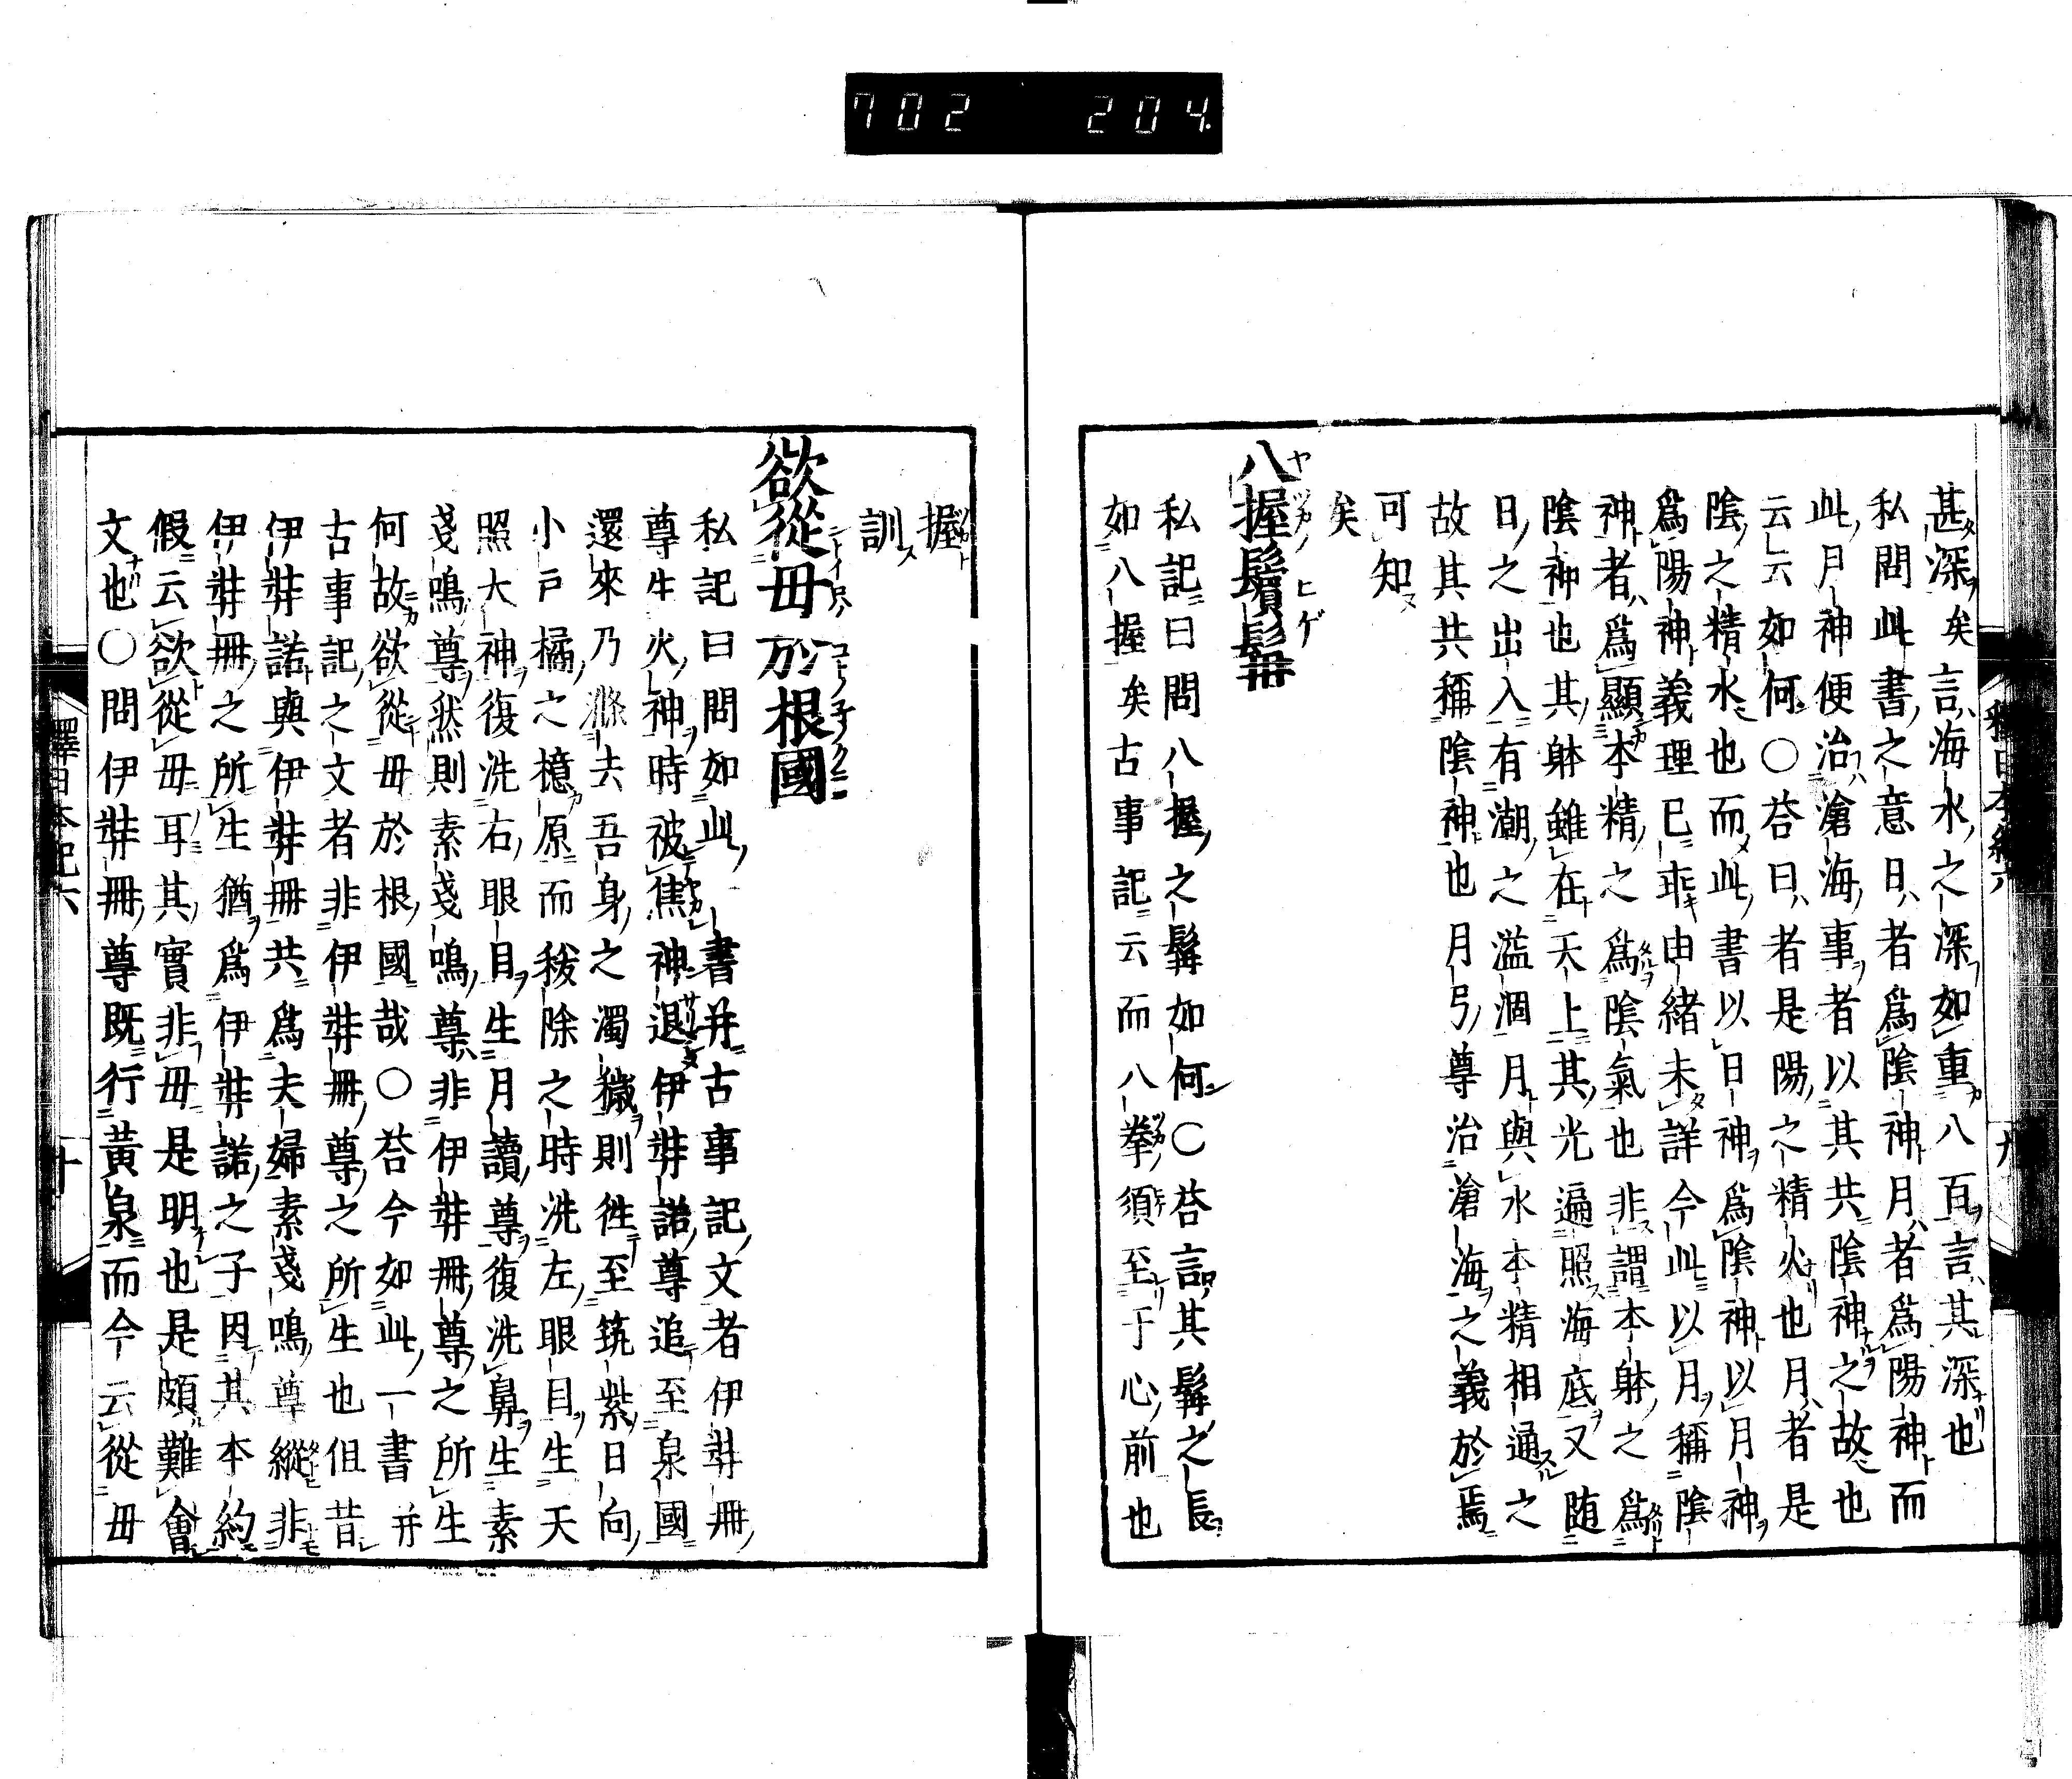 702 204.
甚深矣言海水之深如重八百言其深也
私問此書之意日者爲陰神月者爲陽神而
此月神便治滄海事者以其共陰神之故也
云云如何〇荅曰日者是陽之精火也月者是
陰之精水也而此書以日神爲陰神以月神
爲陽神義理已乖由緒未詳今此以月稱陰
神者爲顯本精之爲陰氣也非謂本躰之爲
陰神也其躰雖在天上其光遍照海底又随
日之出入有潮之溢涸月與水本精相通之
故其共稱陰神也月弓尊治滄海之義於焉
可知
矣
八握鬚髯
私記曰問八握之髯如何〇荅言其髯之長
如八握矣古事記云而八拳須至于心前也
釋日本紀六
九
握
訓
欲從母於根國
私記曰問如此一書并古事記文者伊弉冊
尊生火神時被焦神退伊弉諾尊追至泉國
還來乃滌去吾身之濁穢則徃至筑紫日向
小戸橘之檍原而秡除之時洗左眼目生天
照大神復洗右眼目生月讀尊復洗鼻生素
戔鳴尊然則素戔鳴尊非伊弉冊尊之所生
何故欲從母於根國哉〇荅今如此一書并
古事記之文者非伊弉冊尊之所生也但昔
伊弉諾與伊弉冊共爲夫婦素戔鳴尊縱非
伊弉冊之所生猶爲伊弉諾之子因其本約
假云欲從母耳其實非母是明也是頗難會
文也〇問伊弉冊尊既行黃泉而今云從母
釋日本紀六
十